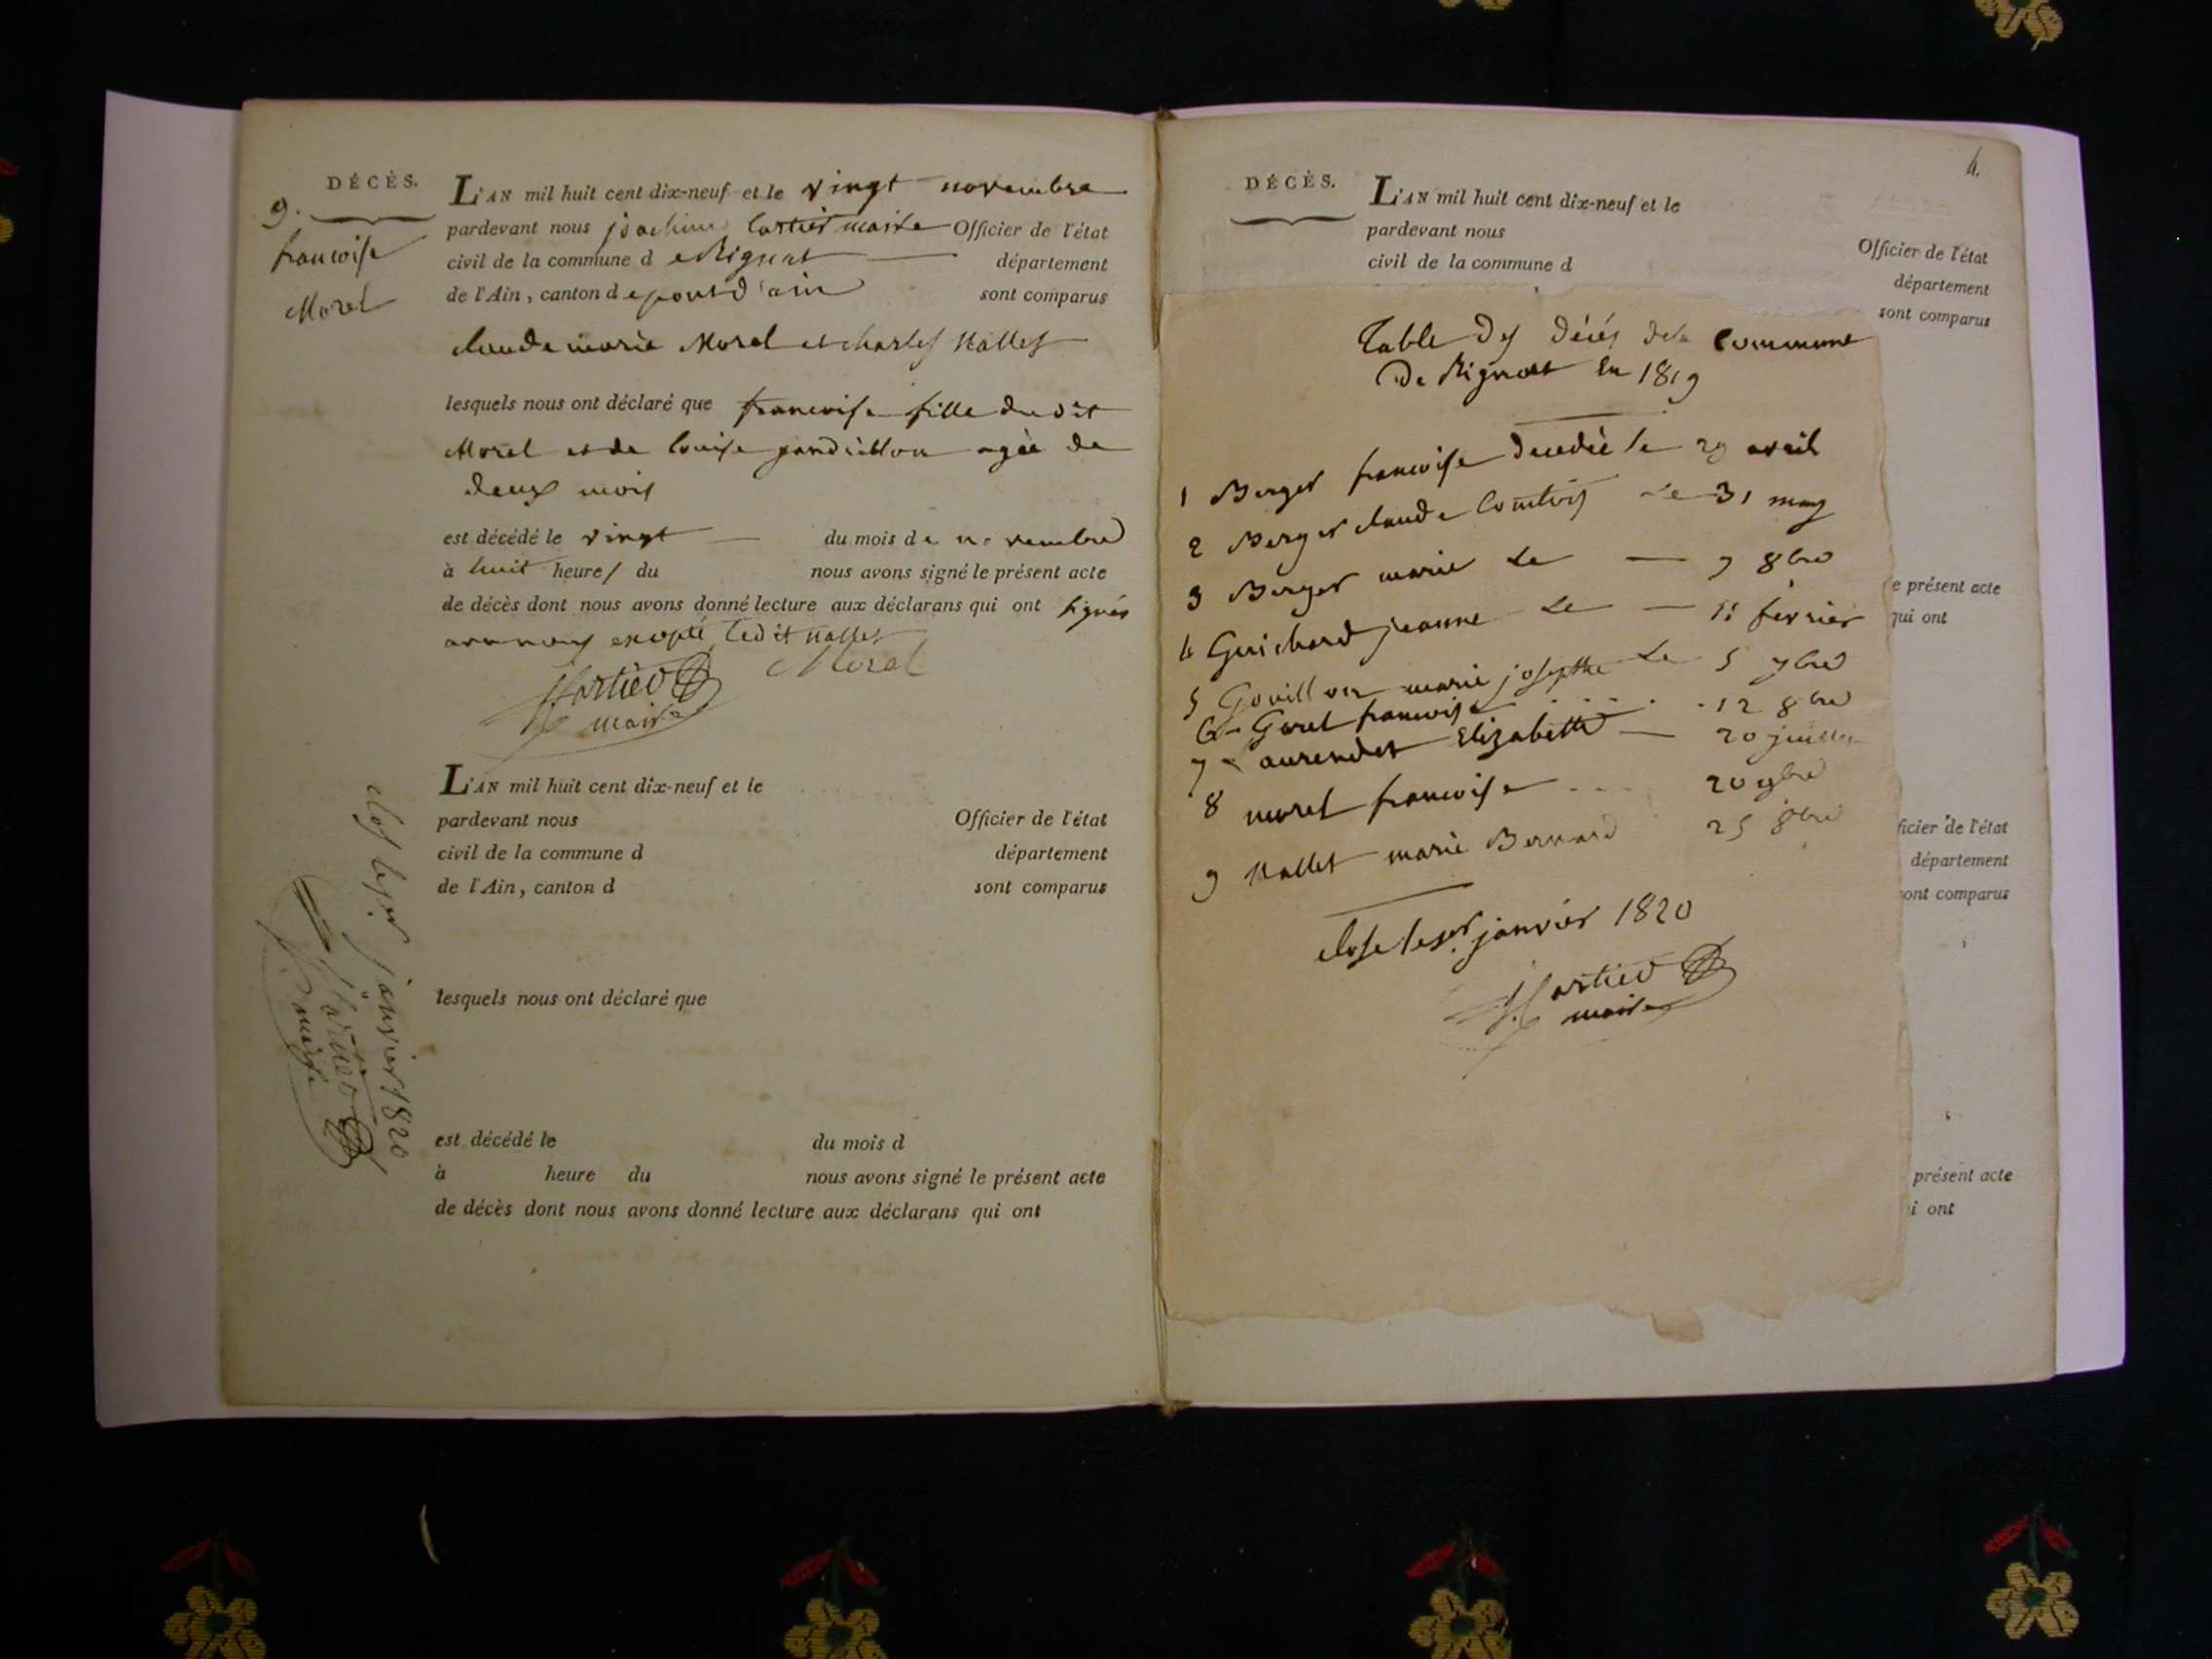 DÉCÈS.
9.
francoise
Morel
L'AN mil huit cent dix-neuf et le vingt novembre
pardevant nous joachim Cartier maire Officier de l'état
civil de la commune d e Rignat département
de l'Ain, canton d e pont d'ain sont comparus
claude marie Morel et charles Nallet
lesquels nous ont déclaré que francoise fille du dit
Morel et de louise agée de
deux mois
est décédé le vingt du mois de novembre
à huit heures du nous avons signé le présent acte
de décès dont nous avons donné lecture aux déclarans qui ont signés
avec nous excepté ledit nallet
Cartier Morel
maire
L'AN mil huit cent dix-neuf et le
pardevant nous Officier de l'état
civil de la commune d département
de l'Ain, canton d sont comparus
lesquels nous ont déclaré que
est décédé le du mois d
à heure du nous avons signé le présent acte
de décès dont nous avons donné lecture aux déclarans qui ont
clos le 1er janvier 1820
Cartier
maire
4.
DÉCÈS.
L'AN mil huit cent dix-neuf et le
pardevant nous Officier de l'état
civil de la commune d département
sont comparus
Table des décés de la commune
De Rignat en 1819
1 Berger francoise decedée le 29 avril
2 Berger claude Comtois le 31 may
3 Berger marie Le 9 8bre
4 Guichard jeanne Le 11 fevrier
5 Gouillon marie josephte Le 5 7bre
6 Goret francoise 12 8bre
7 Laurendet Elizabette 20 juillet
8 morel francoise 20 9bre
9 Nallet marie Bernard 25 8bre
close le 1er janvier 1820
Cartier
maire
e présent acte
qui ont
ficier de l'état
département
sont comparus
présent acte
i ont